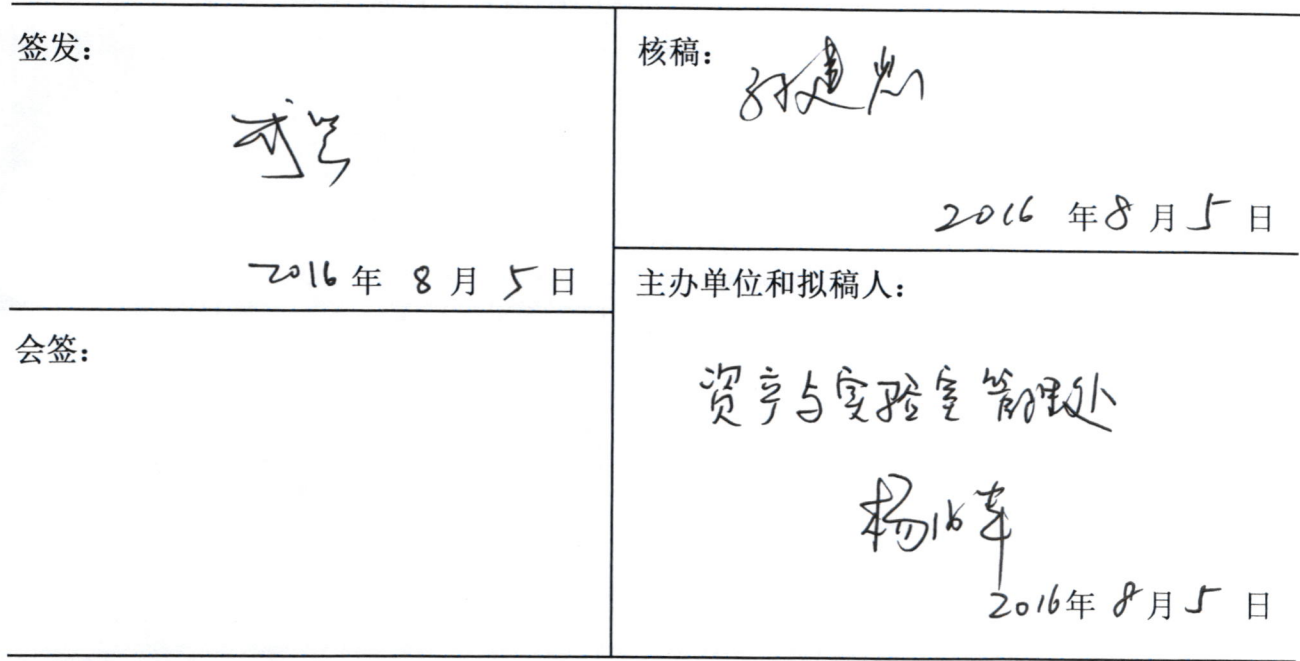 签发：
2016年 8月5日
会签：
核稿：
孙建
2016 年8月5日
主办单位和拟稿人：
资产与实验室管理处
杨
2016年8月5日